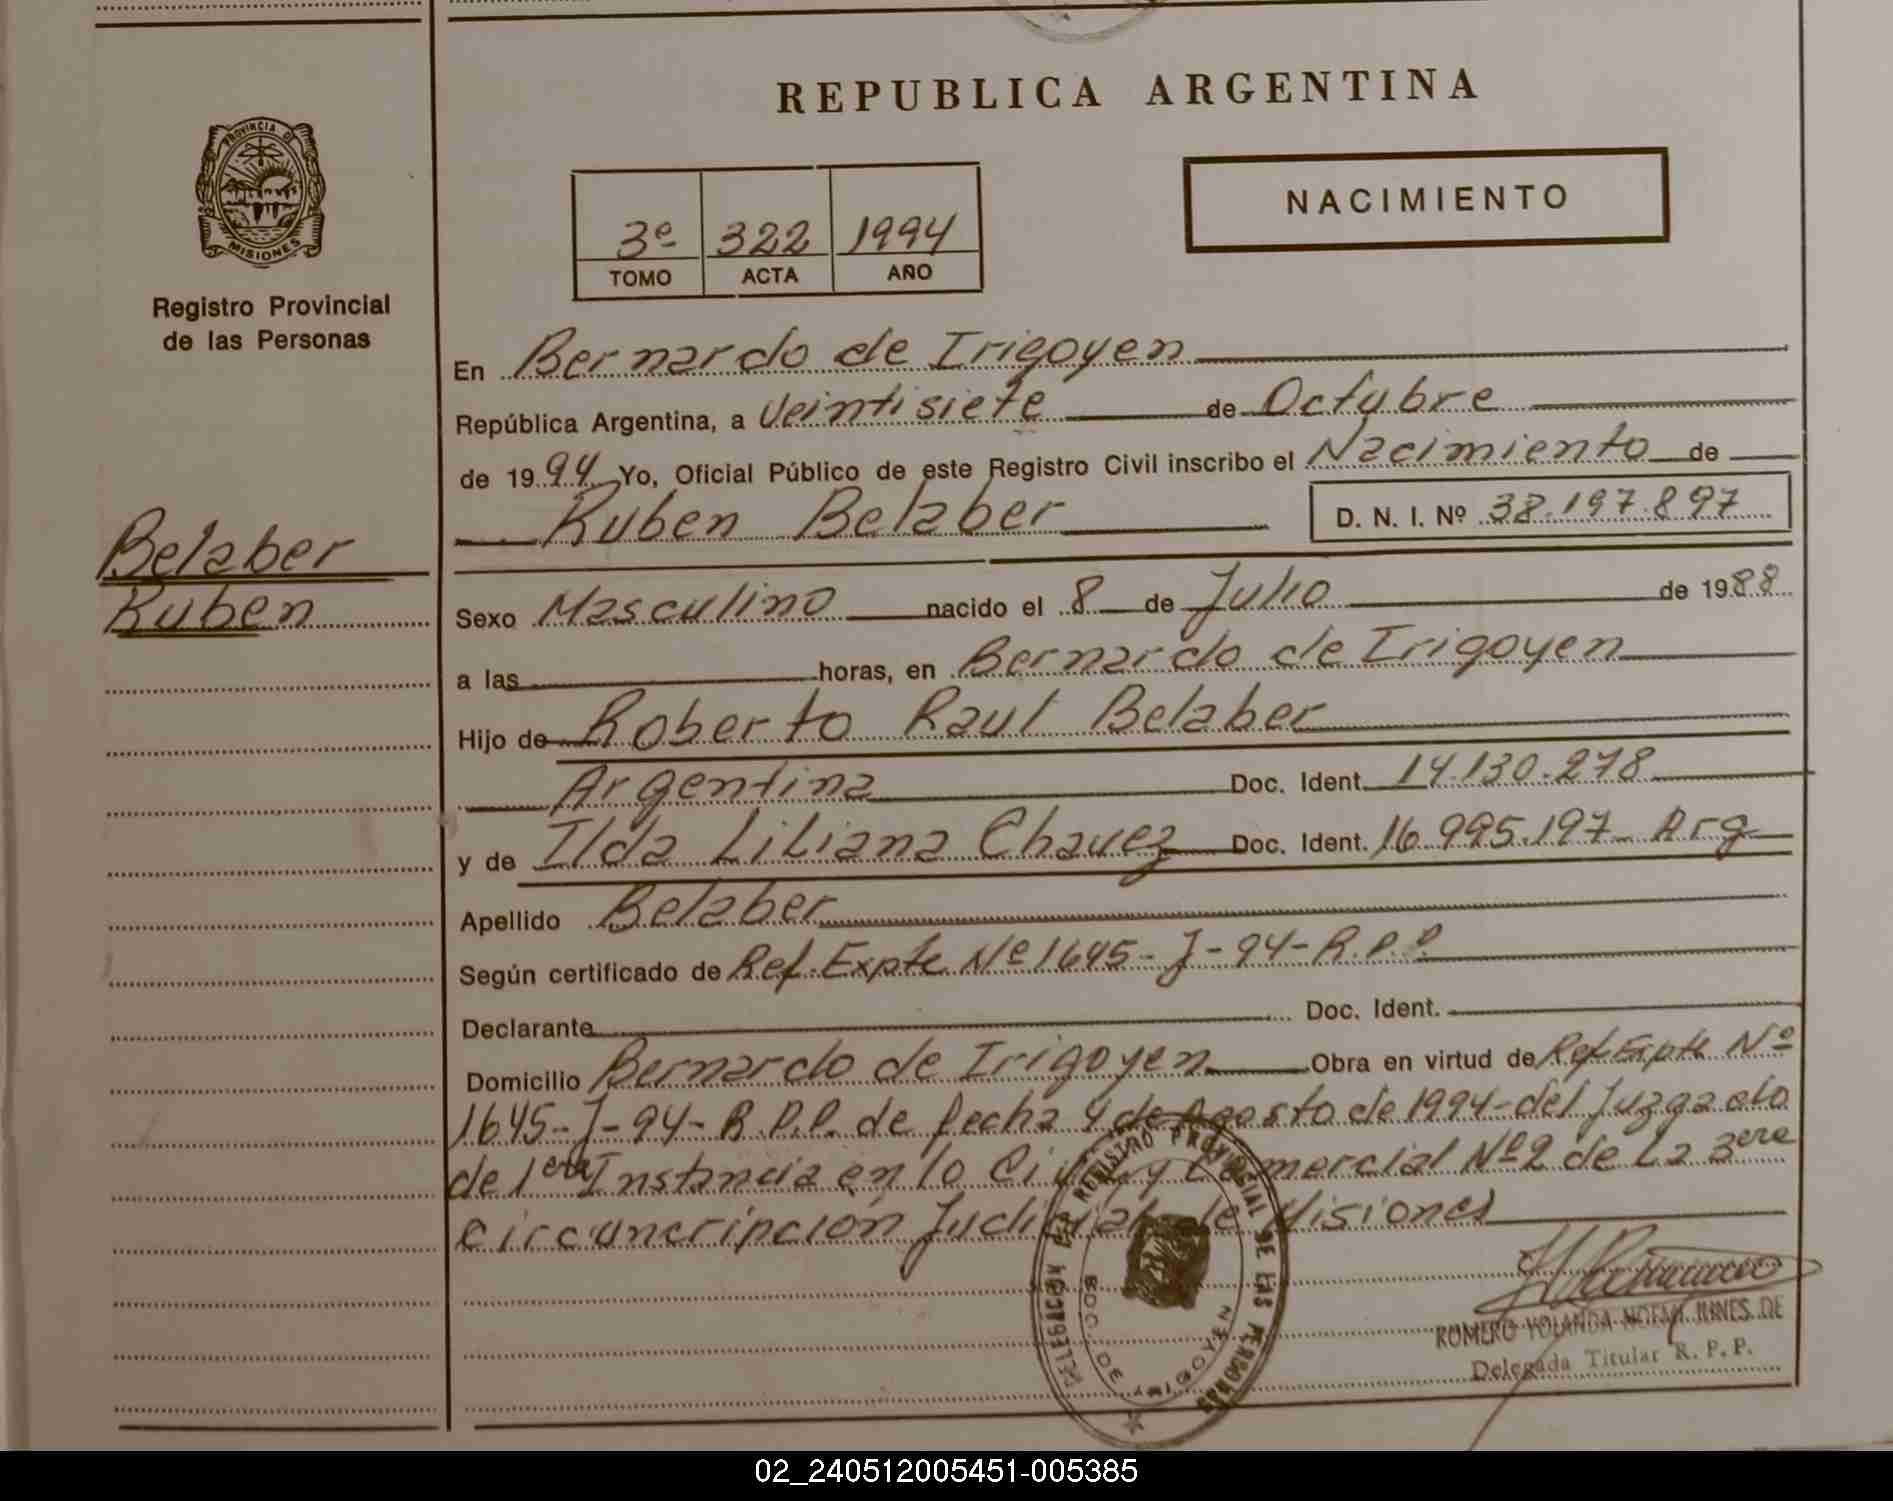 REPUBLICA ARGENTINA
PROVINCIA DE
MISIONES
Registro Provincial
de las Personas
3º 322 1994
TOMO ACTA AÑO
NACIMIENTO
En Bernardo de Irigoyen
República Argentina, a Veintisiete de Octubre
de 1994 Yo, Oficial Público de este Registro Civil inscribo el Nacimiento de
Ruben Belaber D. N. I. Nº 38.197.897
Belaber
Ruben
Sexo Masculino nacido el 8 de Julio de 1988
a las horas, en Bernardo de Irigoyen
Hijo de Roberto Raul Belaber
Argentina Doc. Ident. 14.130.278
y de Ilda Liliana Chavez Doc. Ident. 16.995.197 Arg
Apellido Belaber
Según certificado de Ref. Expte Nº 1645-J-94-R.P.P.
Declarante Doc. Ident.
Domicilio Bernardo de Irigoyen Obra en virtud de Ref Expte Nº
1645-J-94-R.P.P. de fecha 4 de Agosto de 1994-del Juzgado
de 1era Instancia en lo Civil y Comercial Nº2 de La 3era
circuncripción Judicial de Misiones
DELEGACION DEL REGISTRO PROVINCIAL DE LAS PERSONAS
BDO. DE IRIGOYEN
ROMERO YOLANDA NOEMI JUNES DE
Delegada Titular R. P. P.
02_240512005451-005385